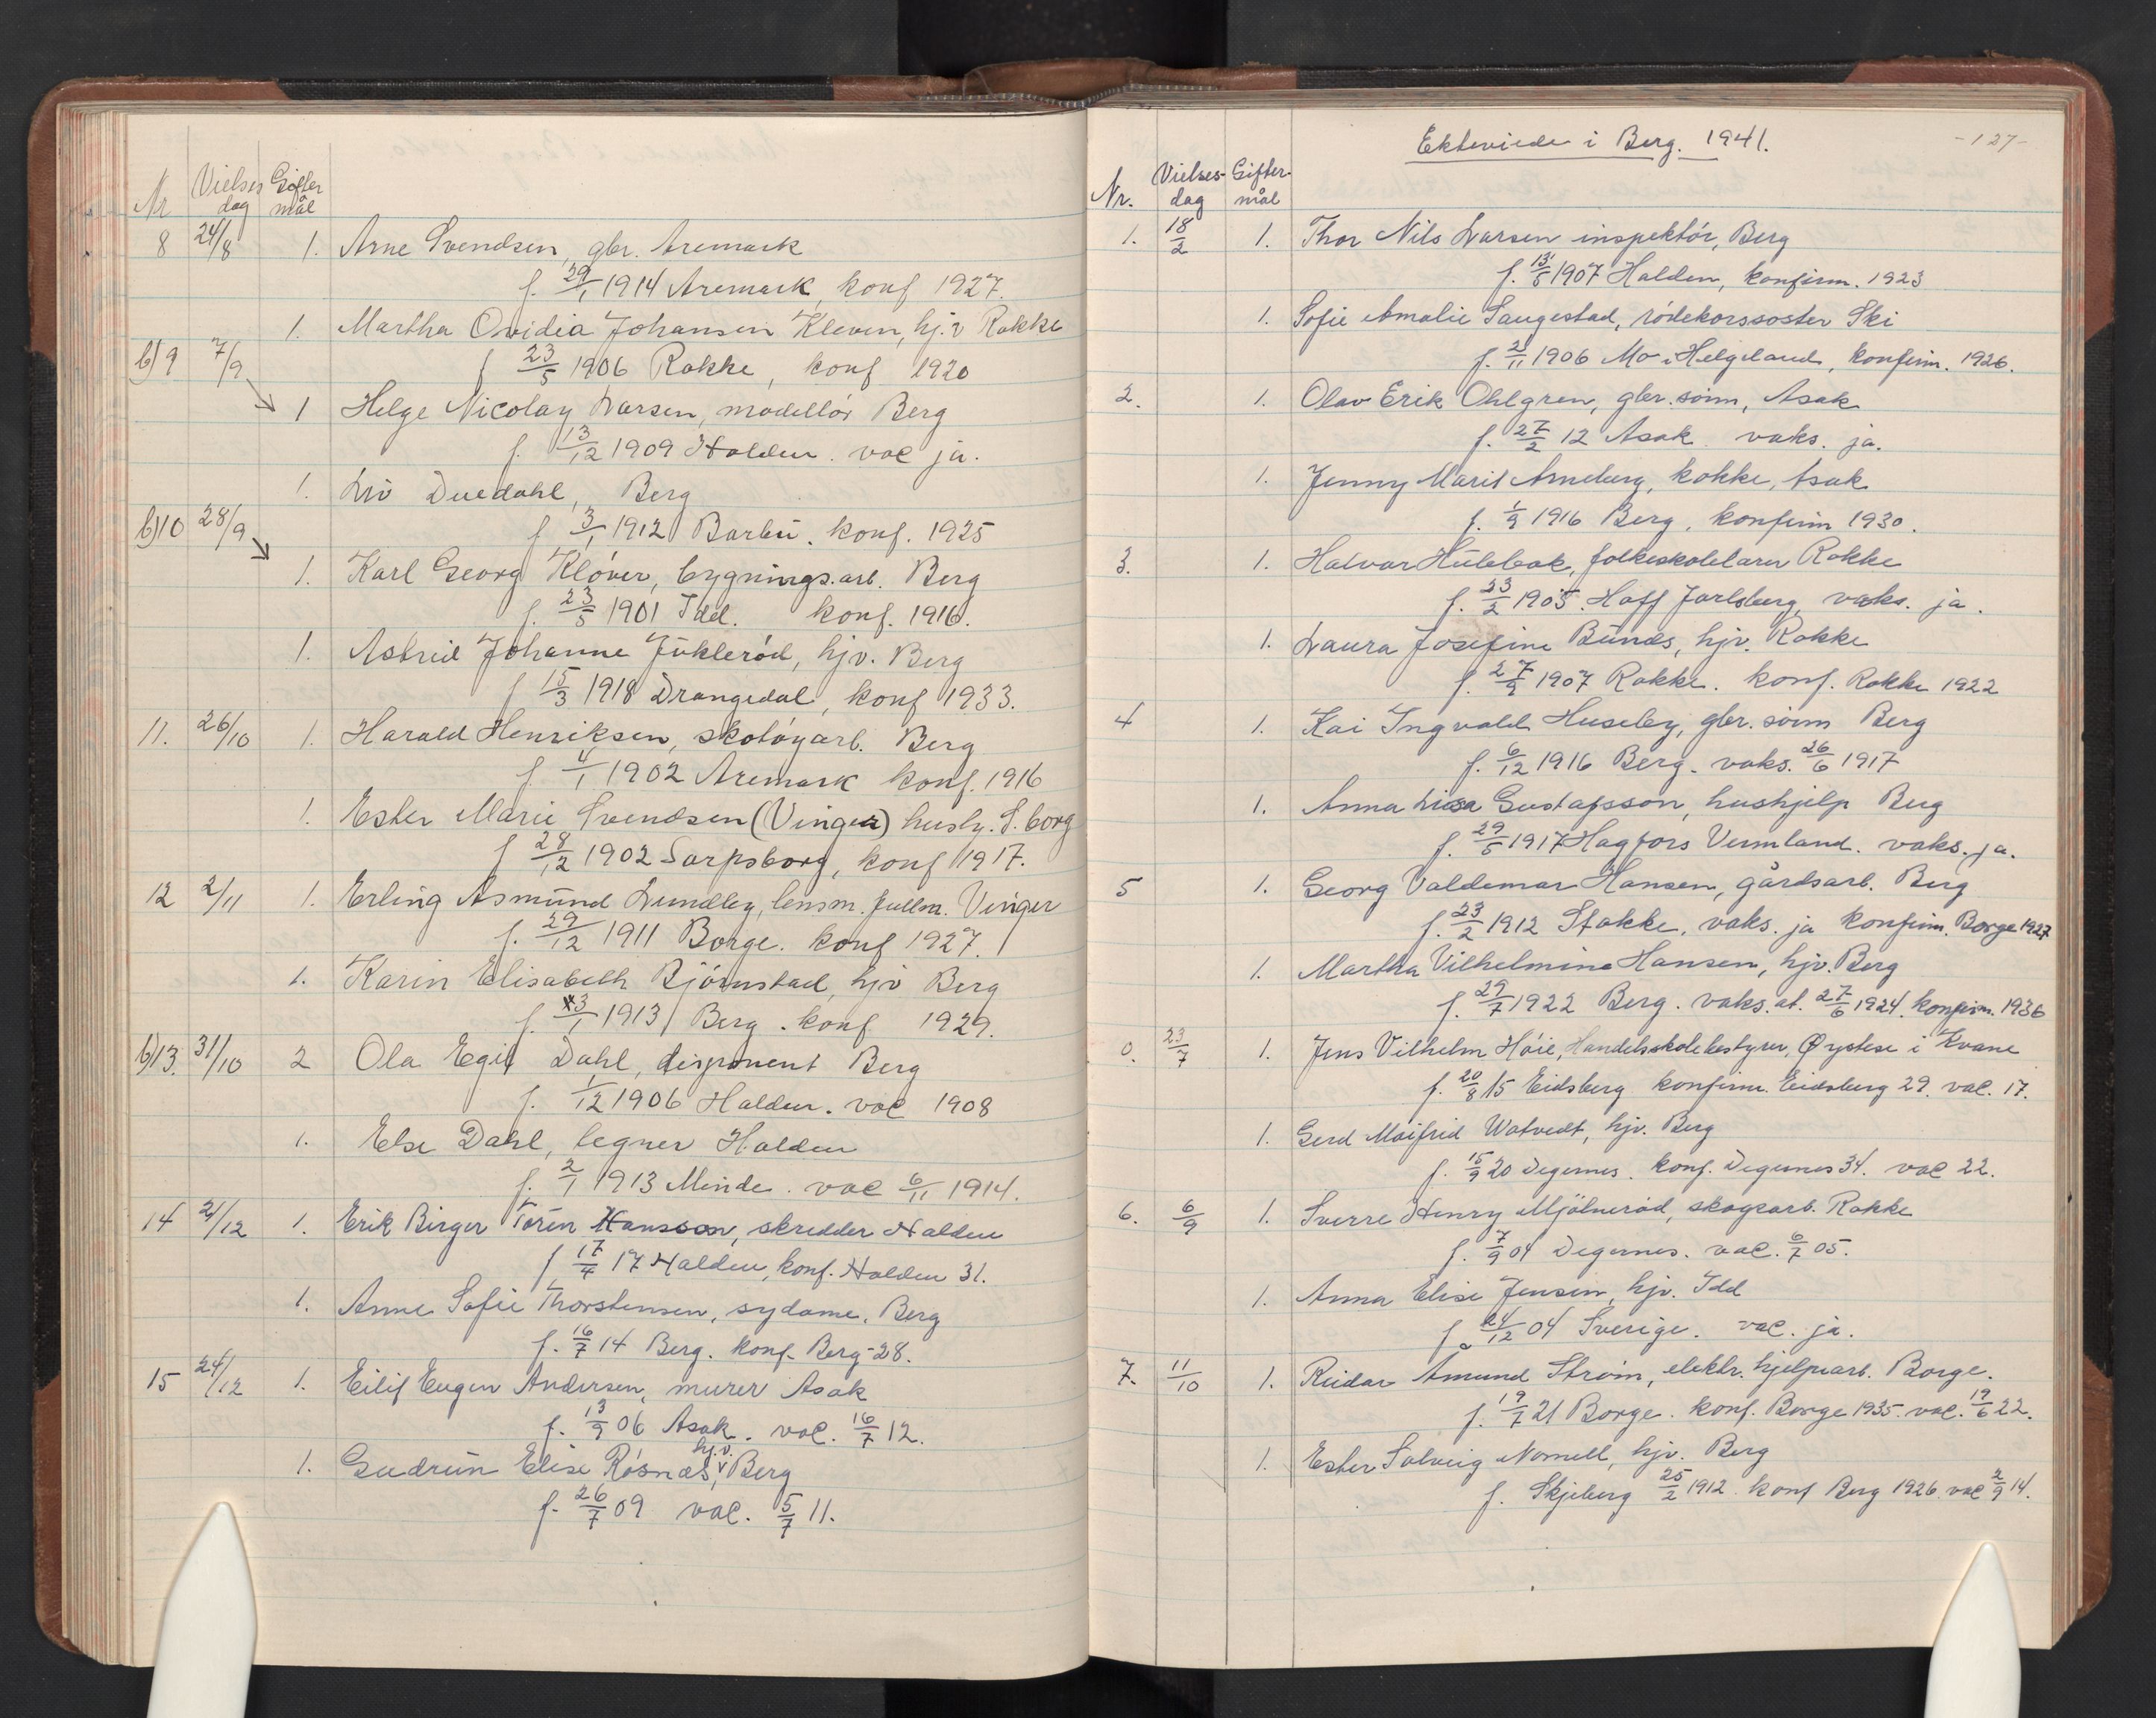 Nr Vielses dag Gifter mål
8 24/8 1. Arne Svendsen, gbr. Aremark
f. 29/1 1914 Aremark, konf 1927.
1. Martha Ovidia Johansen Kleven, hj.v Rokke
b)9 7/9 f 23/5 1906 Rokke, konf 1920
1 Helge Nicolay Larsen, modellör Berg
f. 13/12 1909 Halden. vac ja.
1. Liv Duedahl, Berg
b)10 28/9 f 3/1 1912 Barbu. konf. 1925
1. Karl Georg Klöver, bygnings.arb. Berg
f. 23/5 1901 Idd. konf. 1916.
1. Astrid Johanne Jükleröd, hjv. Berg
f 15/3 1918 Drangedal, konf 1933.
11. 26/10 1. Harald Henriksen, skotöyarb. Berg
f 4/1 1902 Aremark konf. 1916
1. Ester Marie Svendsen (Vinger) husby. S.borg
f 28/12 1902 Sarpsborg, konf 1917.
12 2/11 1. Erling Asmünd Lundby, lensm. fullm. Vinger
f. 29/12 1911 Borge. konf 1927.
1. Karin Elisabeth Björnstad, hjv Berg
f. 3/1 1913 Berg. konf 1929.
b)13. 31/10 2 Ola Egil Dahl, disponent Berg
f. 1/12 1906 Halden. vac 1908
1. Else Dahl, tegner Halden
f. 2/1 1913 Minde. vac 6/11 1914.
14 21/12 1. Erik Birger Torén Hansson, skredder Halden
f 17/4 17 Halden, konf. Halden 31.
1. Anne Sofie Thorstensen, sydame, Berg
f. 16/7 14 Berg. konf. Berg-28.
15 24/12 1. Eilif Eugen Andersen, murer Asak
f. 13/9 06 Asak. vac. 16/7 12.
hj.v.
1. Gudrün Elise Rösnæs, Berg
f. 26/7 09 vac. 5/7 11.
-127-
Ekteviede i Berg. 1941.
Nr. Vielses-dag Gifter-mål
1. 18/2 1. Thor Nils Larsen inspektör, Berg
f. 13/5 1907 Halden, konfirm. 1923
1. Sofie Amalie Saugestad, rödekorssoster Ski
f. 2/11 1906 Mo i Helgeland, konfirm. 1926.
2. 1. Olav Erik Ohlgren, gbr. sönn, Asak
f. 27/2 12 Asak. vaks. ja.
1. Jenny Marit Arneberg, kokke, Asak
f. 1/9 1916 Berg, konfirm 1930.
3. 1. Halvar Hülebak, folkeskolelærer Rokke
f. 23/2 1905. Hoff Jarlsberg, vaks. ja.
1. Laura Josefine Bünæs, hjv. Rokke
f. 27/9 1907 Rokke. konf. Rokke 1922
4 1. Kai Ingvald Huseby, gbr. sönn Berg
f. 6/12 1916 Berg. vaks. 26/6 1917
1. Anna Lisa Gustafsson, hushjelp Berg
f. 29/5 1917 Hagfors Vermland. vaks. ja.
5 1. Georg Valdemar Hansen, gårdsarb. Berg
f. 23/2 1912 Stokke, vaks. ja konfirm. Borge 1927
1. Martha Vilhelmine Hansen, hjv. Berg
f. 29/7 1922 Berg. vaks. at. 27/6 1924. konfirm. 1936
0. 23/7 1. Jens Vilhelm Höie, Handelsskolebestyrer, Öystese i Kvam
f. 20/8 15 Eidsberg konfirm. Eidsberg 29. vac. 17.
1. Gerd Maifrid Watvedt, hjv. Berg
f. 15/9 20 Degernes. konf. Degernes 34. vac 22.
6. 6/9 1. Sverre Henry Mjölneröd, skogsarb. Rokke
f. 7/9 04 Degernes. vac. 6/7 05.
1. Anna Elise Jensen, hjv. Idd
f. 24/12 04 Sverige. vac. ja.
7. 11/10 1. Reidar Åmund Ström, elektr. hjelpearb. Borge.
f. 19/7 21 Borge. konf. Borge 1935. vac. 19/6 22.
1. Ester Solveig Nomell, hjv. Berg
f. Skjeberg 25/2 1912. konf Berg 1926. vac 2/9 14.